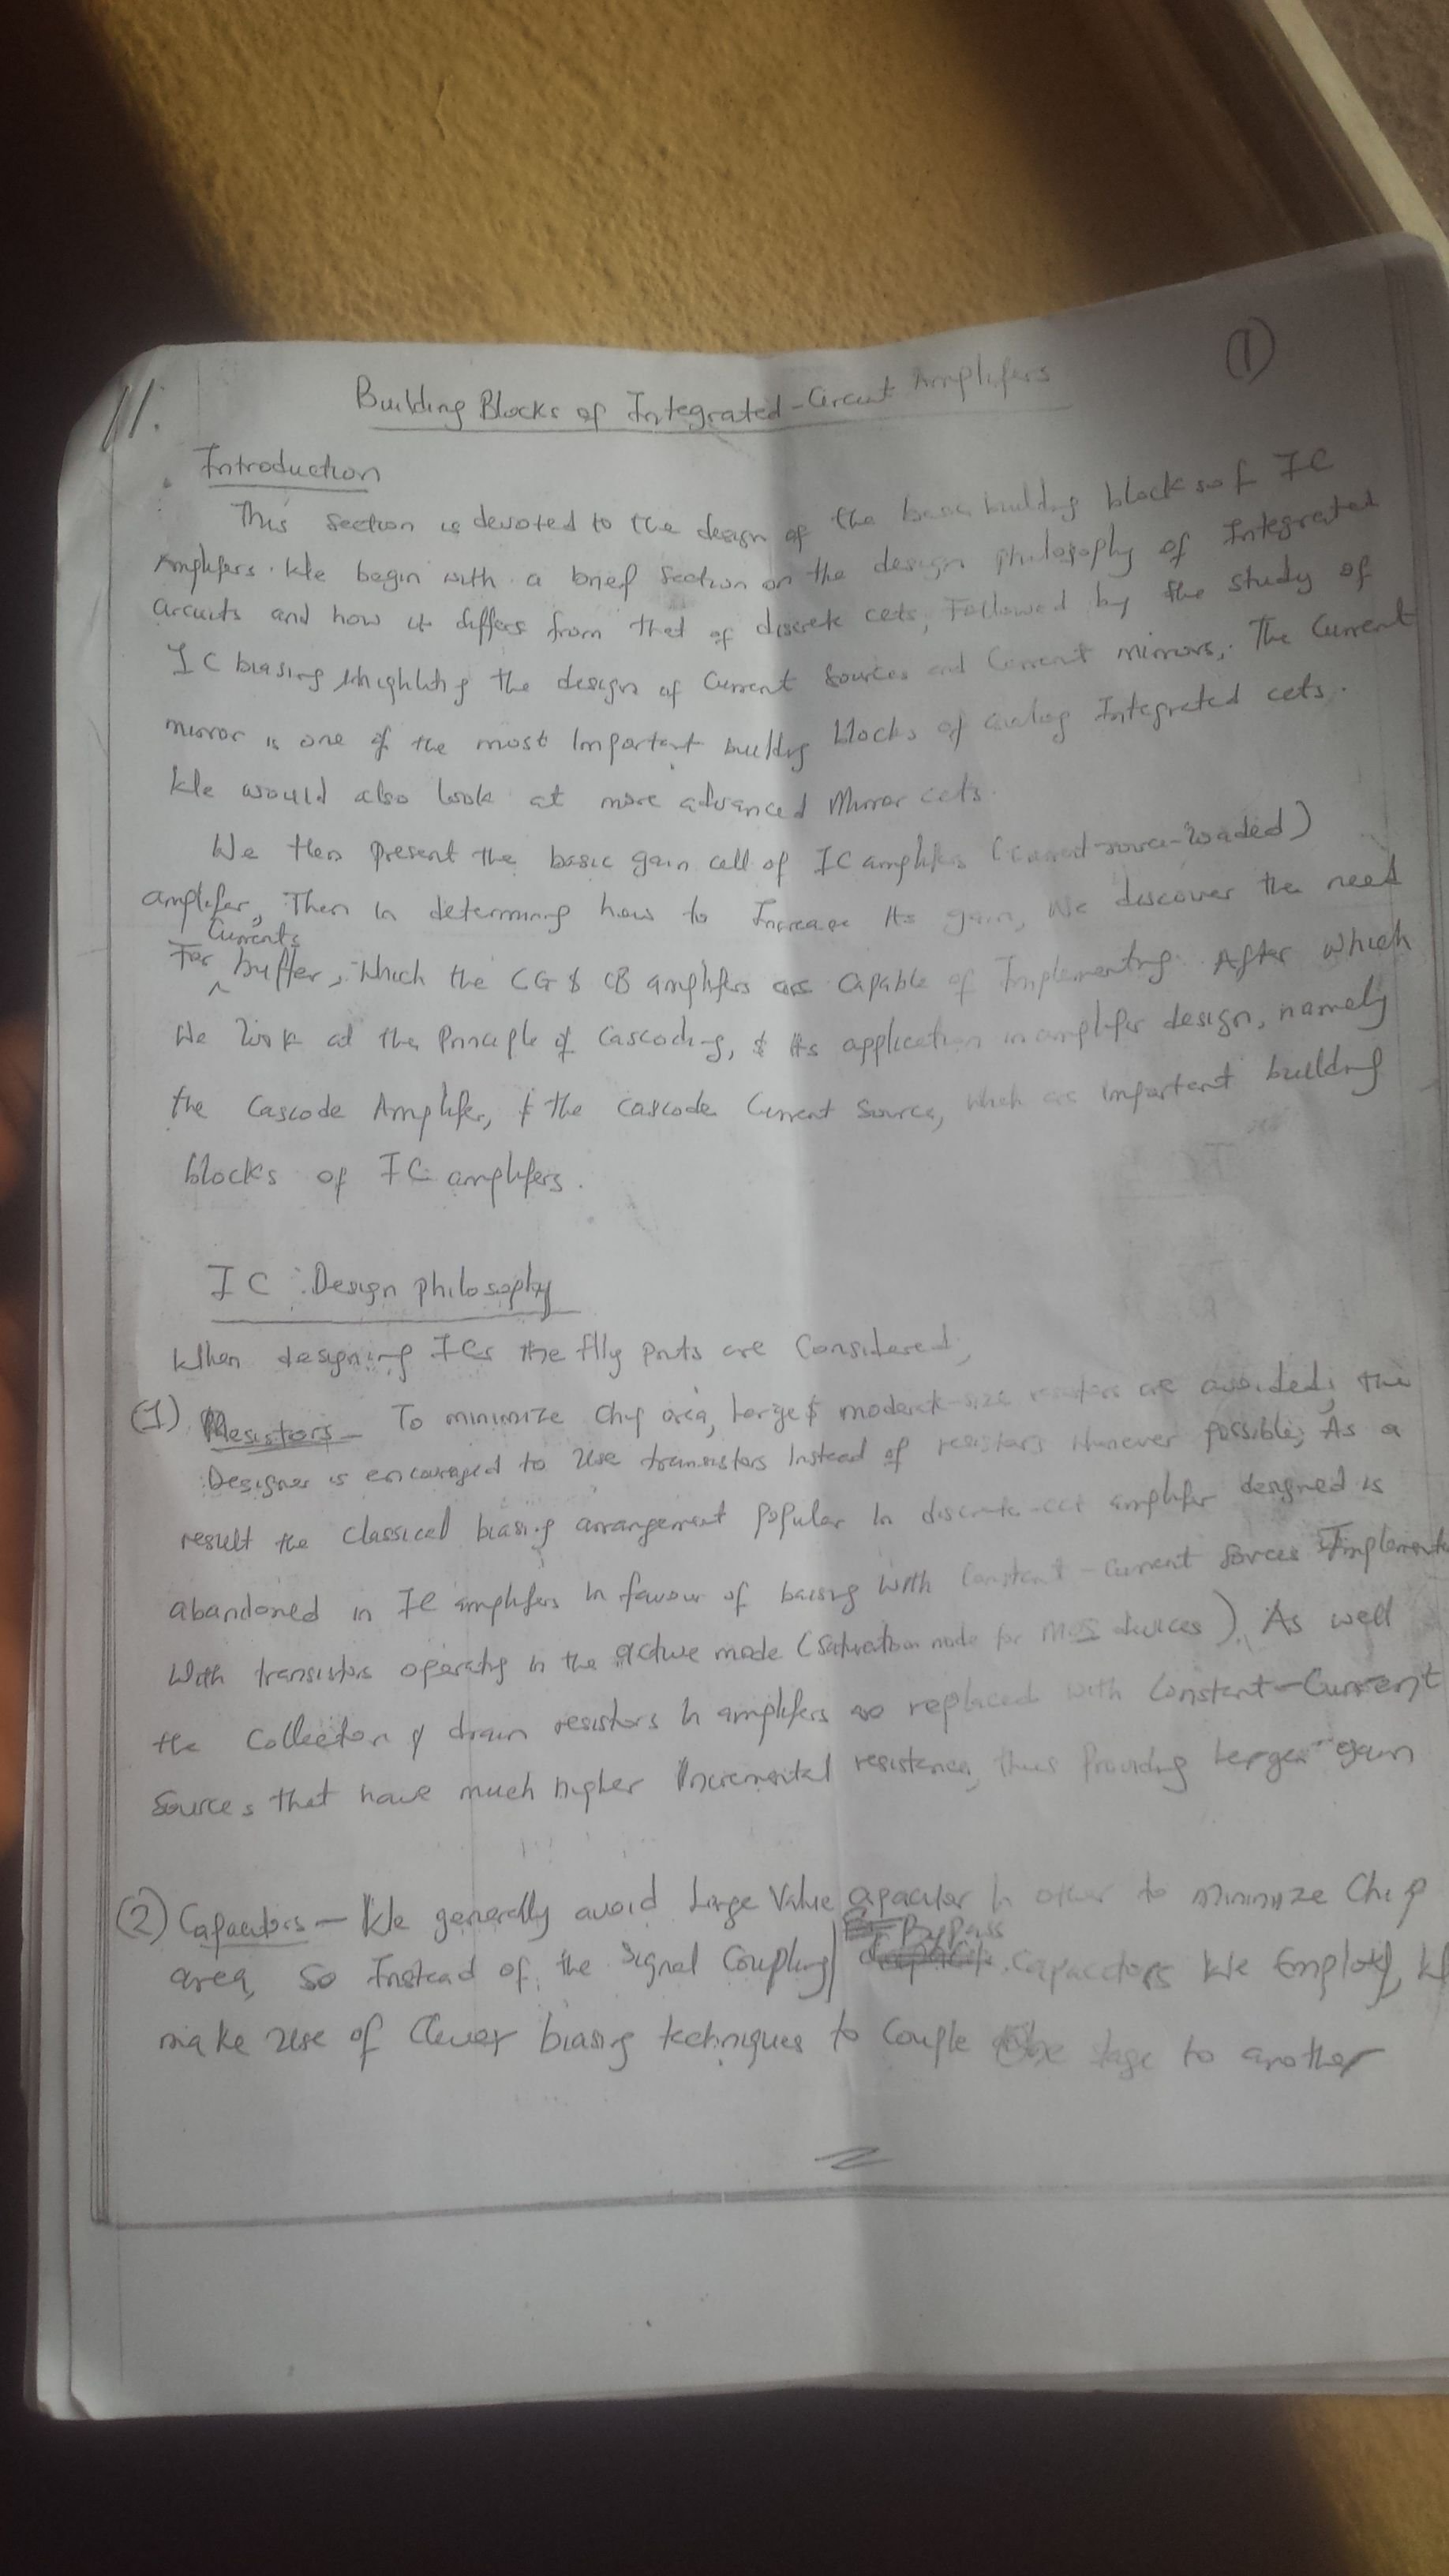 11.
①
Building Blocks of Integrated-Circuit Amplifers
Introduction
This section is devoted to the design of the basic building blocks of IC
Amplifers. We begin with a brief section on the design philosophy of Integrated
circuits and how it differs from that of discrete ccts, followed by the study of
IC biasing highlighting the design of current sources and current mirrors,. The current
mirror is one of the most Important building blocks of analog Integrated ccts.
We would also look at more advanced Mirror ccts.
We then present the basic gain cell of IC amplifers (current-source-loaded)
amplifer, Then In determining how to Increase Its gain, We discover the need
Currents
For buffer, which the CG & CB amplifers are capable of Implementing. After which
We look at the Principle of Cascoding, & Its application in amplifer design, namely
the Cascode Amplifer, & the cascode Current Source, which are important building
blocks of IC amplifers.
IC Design philosophy
When designing ICs the fllg pnts are Considered,
(1) Resistors - To minimize chip area, Large & moderate-size resistors are avoided, the
Designer is encouraged to use transistors Instead of resistors whenever possible, As a
result the classical biasing arrangement popular In discrete-cct amplifer designed is
abandoned in IC amplifers In favour of baising With Constant-Current Sorces Implemente
With transistors operating In the active mode (Saturation mode for MOS devices). As well
the Collector & drain resistors In amplifers are replaced with Constant-Current
Sources that have much higher Incremental resistances, thus Providing larger gain
(2) Capacitors - We generally avoid Large Value capacitor In other to minimize Chip
area, so Instead of the signal Coupling
Bypass
Capacitors We Employ, We
make use of Clever biasing techniques to Couple One stage to another